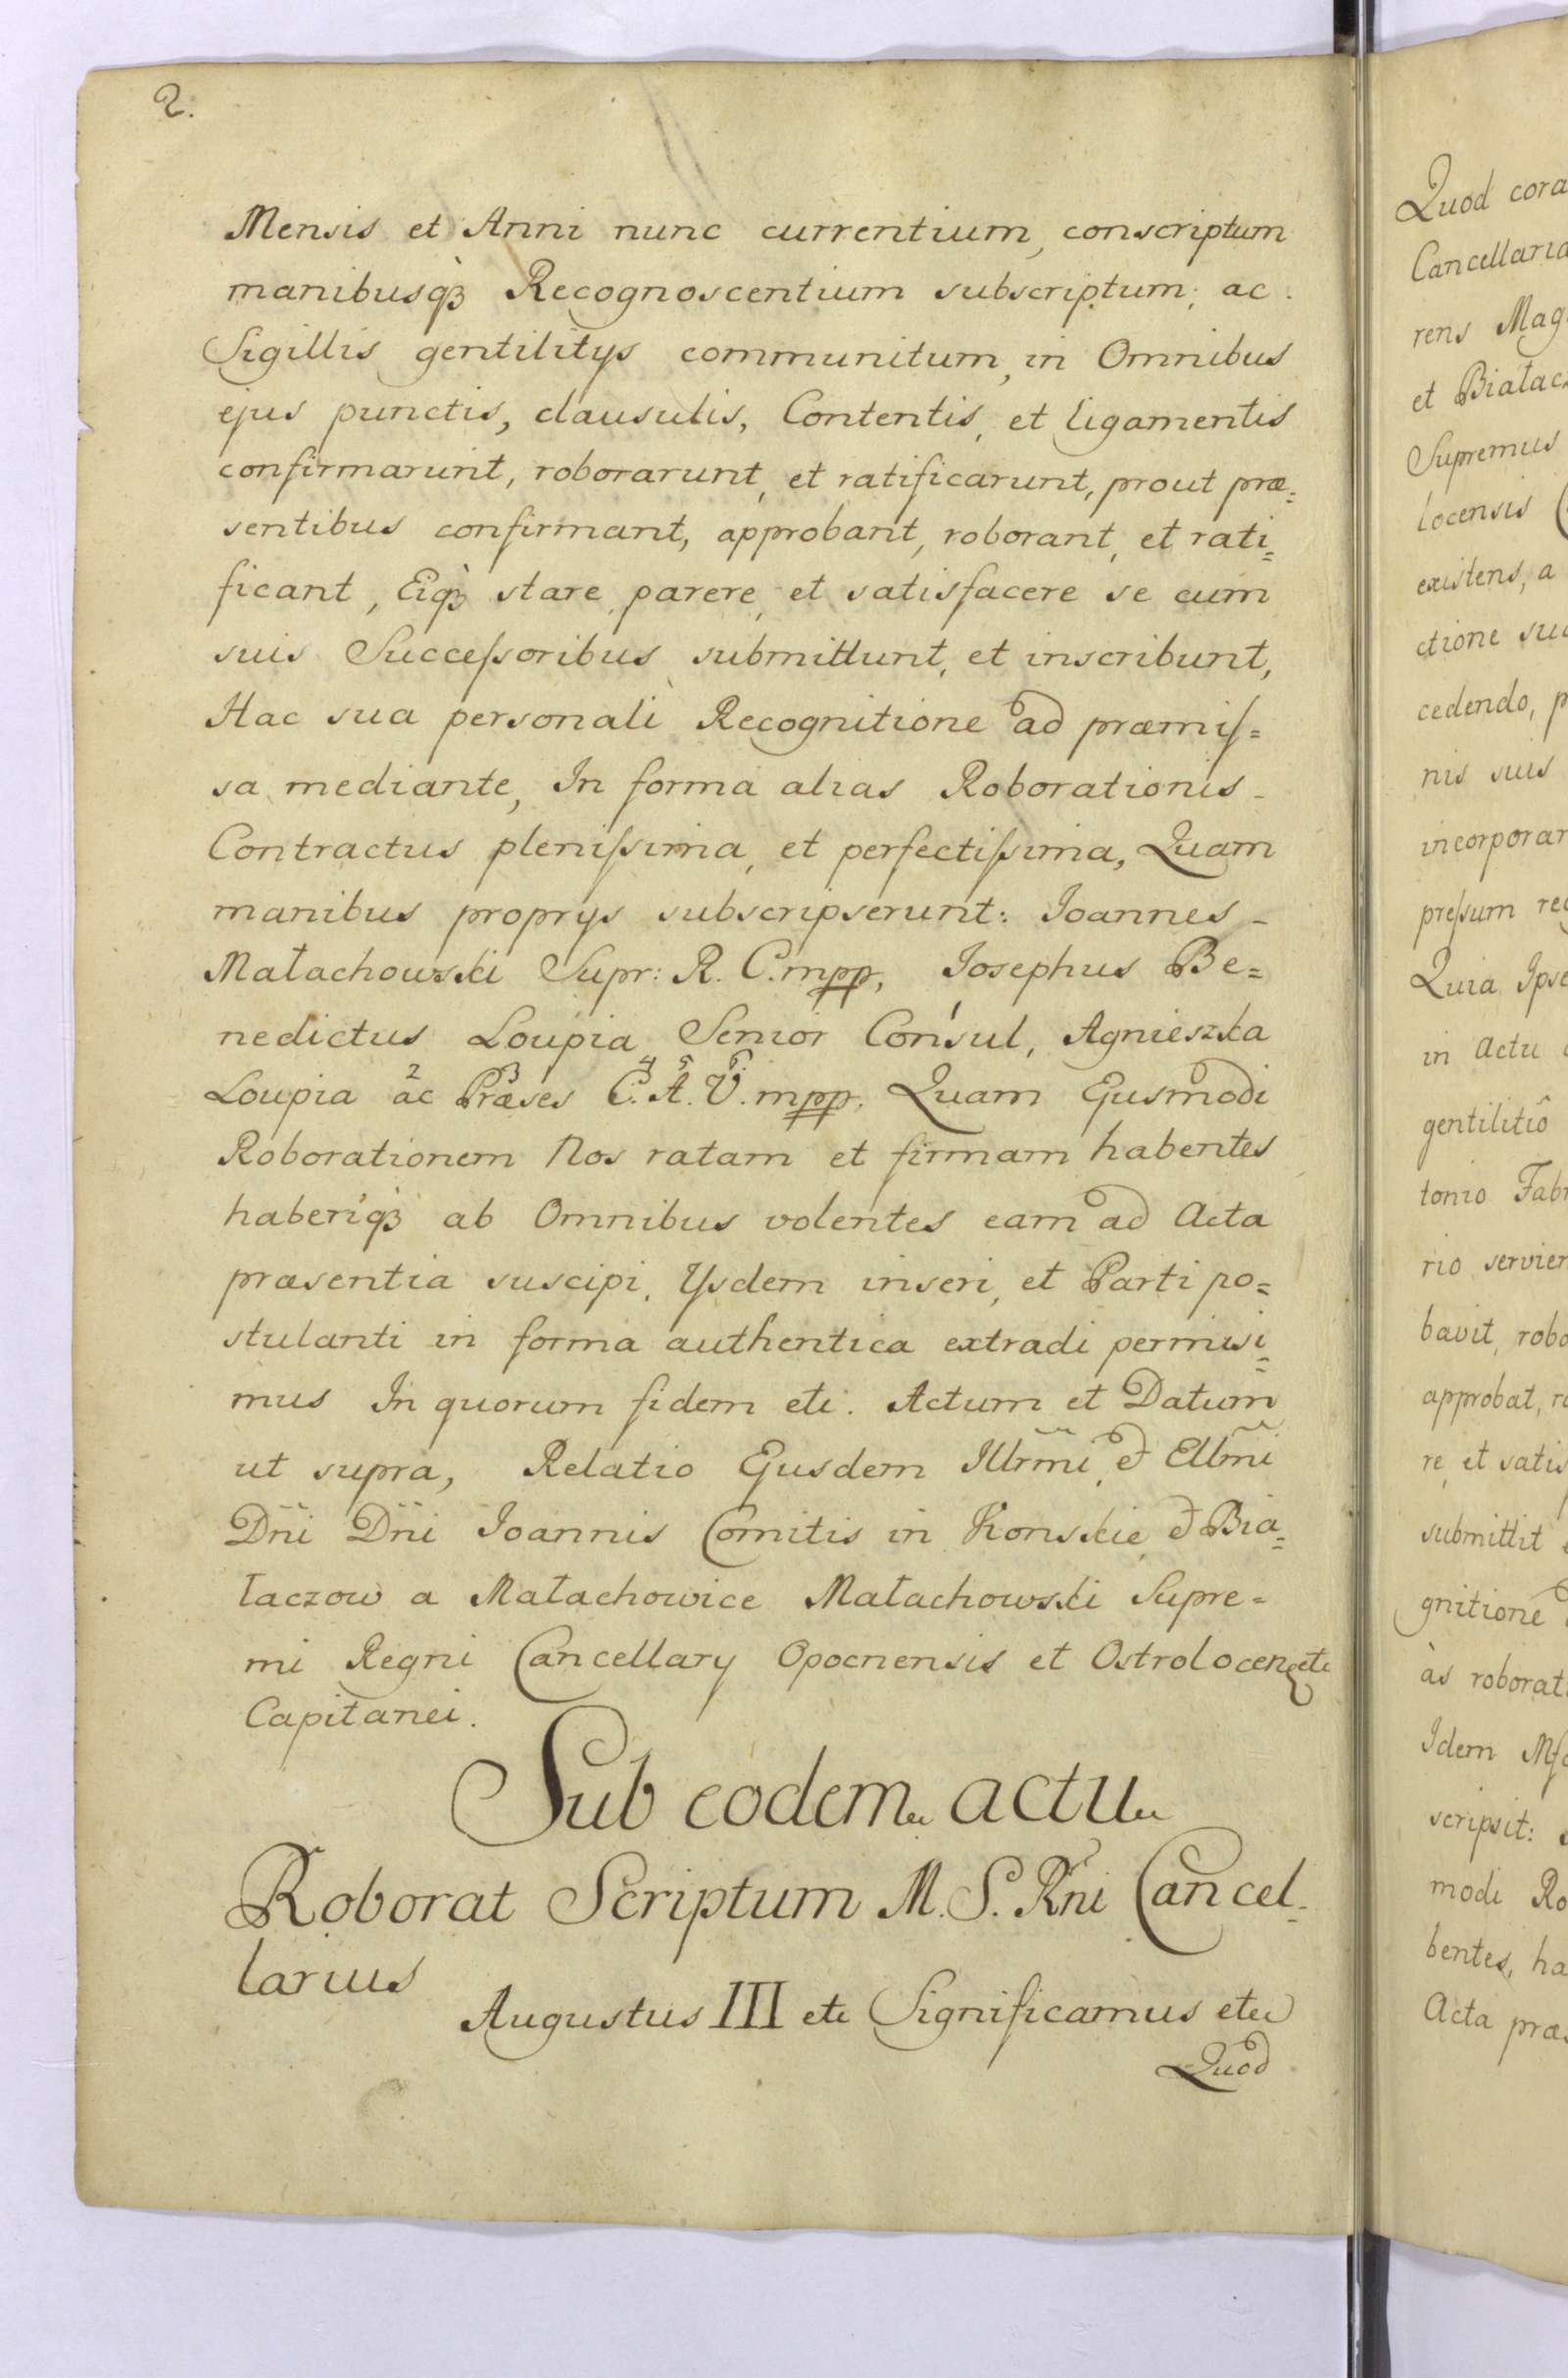 2.
Mensis et Anni nunc currentium, conscriptum
manibusq̀ꝫ Recognoscentium subscriptum, ac
Sigillis gentilitys communitum, in Omnibus
ejus punctis, clausulis, Contentis, et ligamentis
confirmarunt, roborarunt, et ratificarunt, prout præ=
sentibus confirmant, approbant, roborant, et rati=
ficant, Eiq̀ꝫ stare, parere, et satisfacere se cum
suis Succeſsoribus submittunt, et inscribunt,
Hac sua personali Recognitione ad præmiſ=
sa mediante, In forma alias Roborationis -
Contractus pleniſsima, et perfectiſsima, Quam
manibus proprys subscripserunt: Ioannes -
Małachowski Supr: R. C. mpp, Iosephus Be=
nedictus Loupia Senior Consul, Agnieszka
Loupia ac Præses C. A. V. mpp. Quam Ejusmodi
1 2 3 4 5 6
Roborationem Nos ratam et firmam habentes
haberiq̀ꝫ ab Omnibus volentes eam ad Acta
præsentia suscipi, Ysdem inseri, et Parti po=
stulanti in forma authentica extradi permisi=
mus In quorum fidem etc. Actum et Datum
ut supra, Relatio Ejusdem Illrm̃i, & Ellm̃i
Dñi Dñi Ioannis Comitis in Konskie & Bia=
łaczow a Małachowice Małachowski Supre=
mi Regni Cancellary Opocnensis et Ostrolocen: etc
Capitanei.
Sub eodem actu
Roborat Scriptum M. S. Rñi Cancel=
larius
Augustus III etc Significamus etc
Quod
Quod cora
Cancellaria
rens Mag
et Białac
Supremus
locensis
existens, a
ctione sua
cedendo, p
nis suis
incorporar
preſsum rec
Quia Ipse
in Actu
gentilitiô
tonio Fabr
rio servien
bavit, robo
approbat, ro
re, et satis
submittit
gnitione
às roborat
Idem
scripsit:
modi Ro
bentes, ha
Acta præs